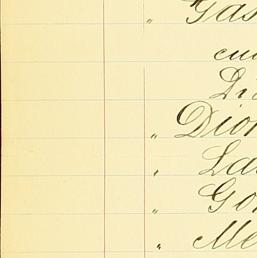 " Gas
cu
Di
" Dion
" La
" Go
" Me